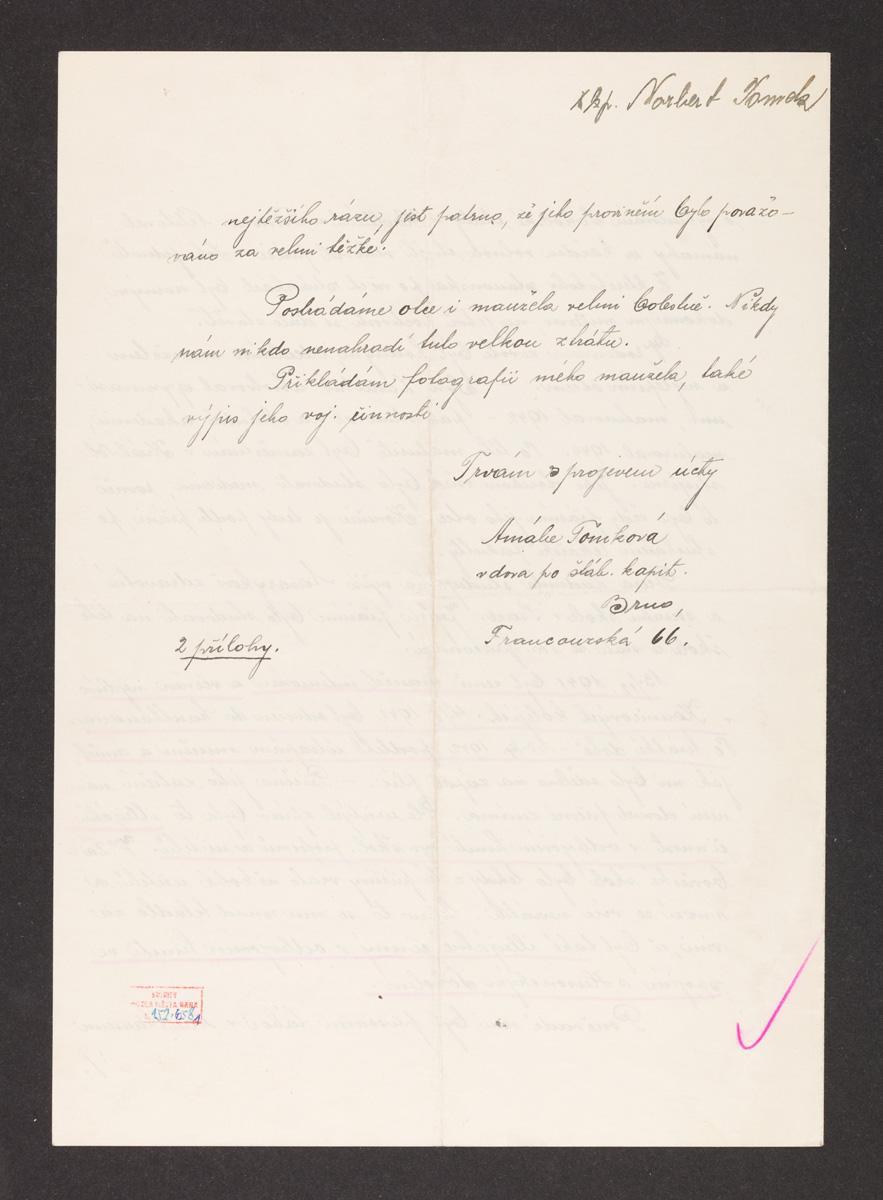 škp. Norbert Tomek
nejtěžšího rázu, jest patrno, že jeho provinění bylo považo-
váno za velmi těžké.
Postrádáme otce i manžela velmi bolestně. Nikdy
nám nikdo nenahradí tuto velkou ztrátu.
Přikládám fotografii mého manžela, také
výpis jeho voj. činnosti
Trvám s projevem úcty
Amálie Tomková
vdova po štáb. kapit.
Brno,
Francouzská 66.
2 přílohy.
MUZEA MĚSTA BRNA
152.658